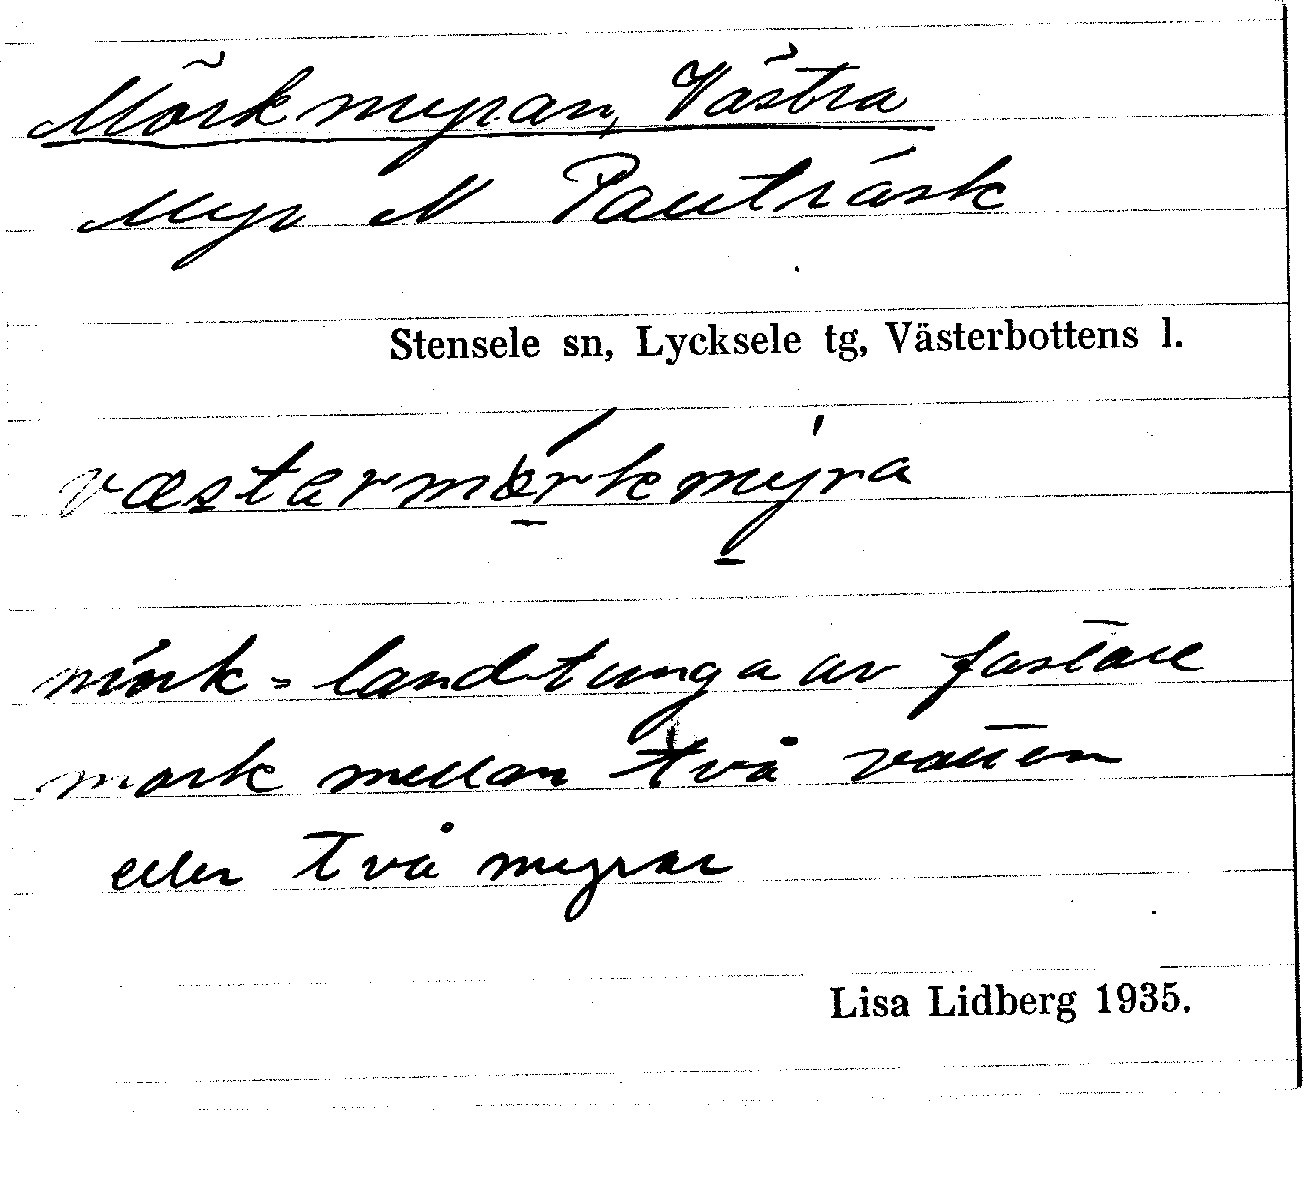 Mörkmyran, Västra
Myr N Pauträsk
Stensele sn, Lycksele tg, Västerbottens l.
væstermörkmyra
mörk = landtunga av fastare
mark mellan två vatten
eller två myrar
Lisa Lidberg 1935.